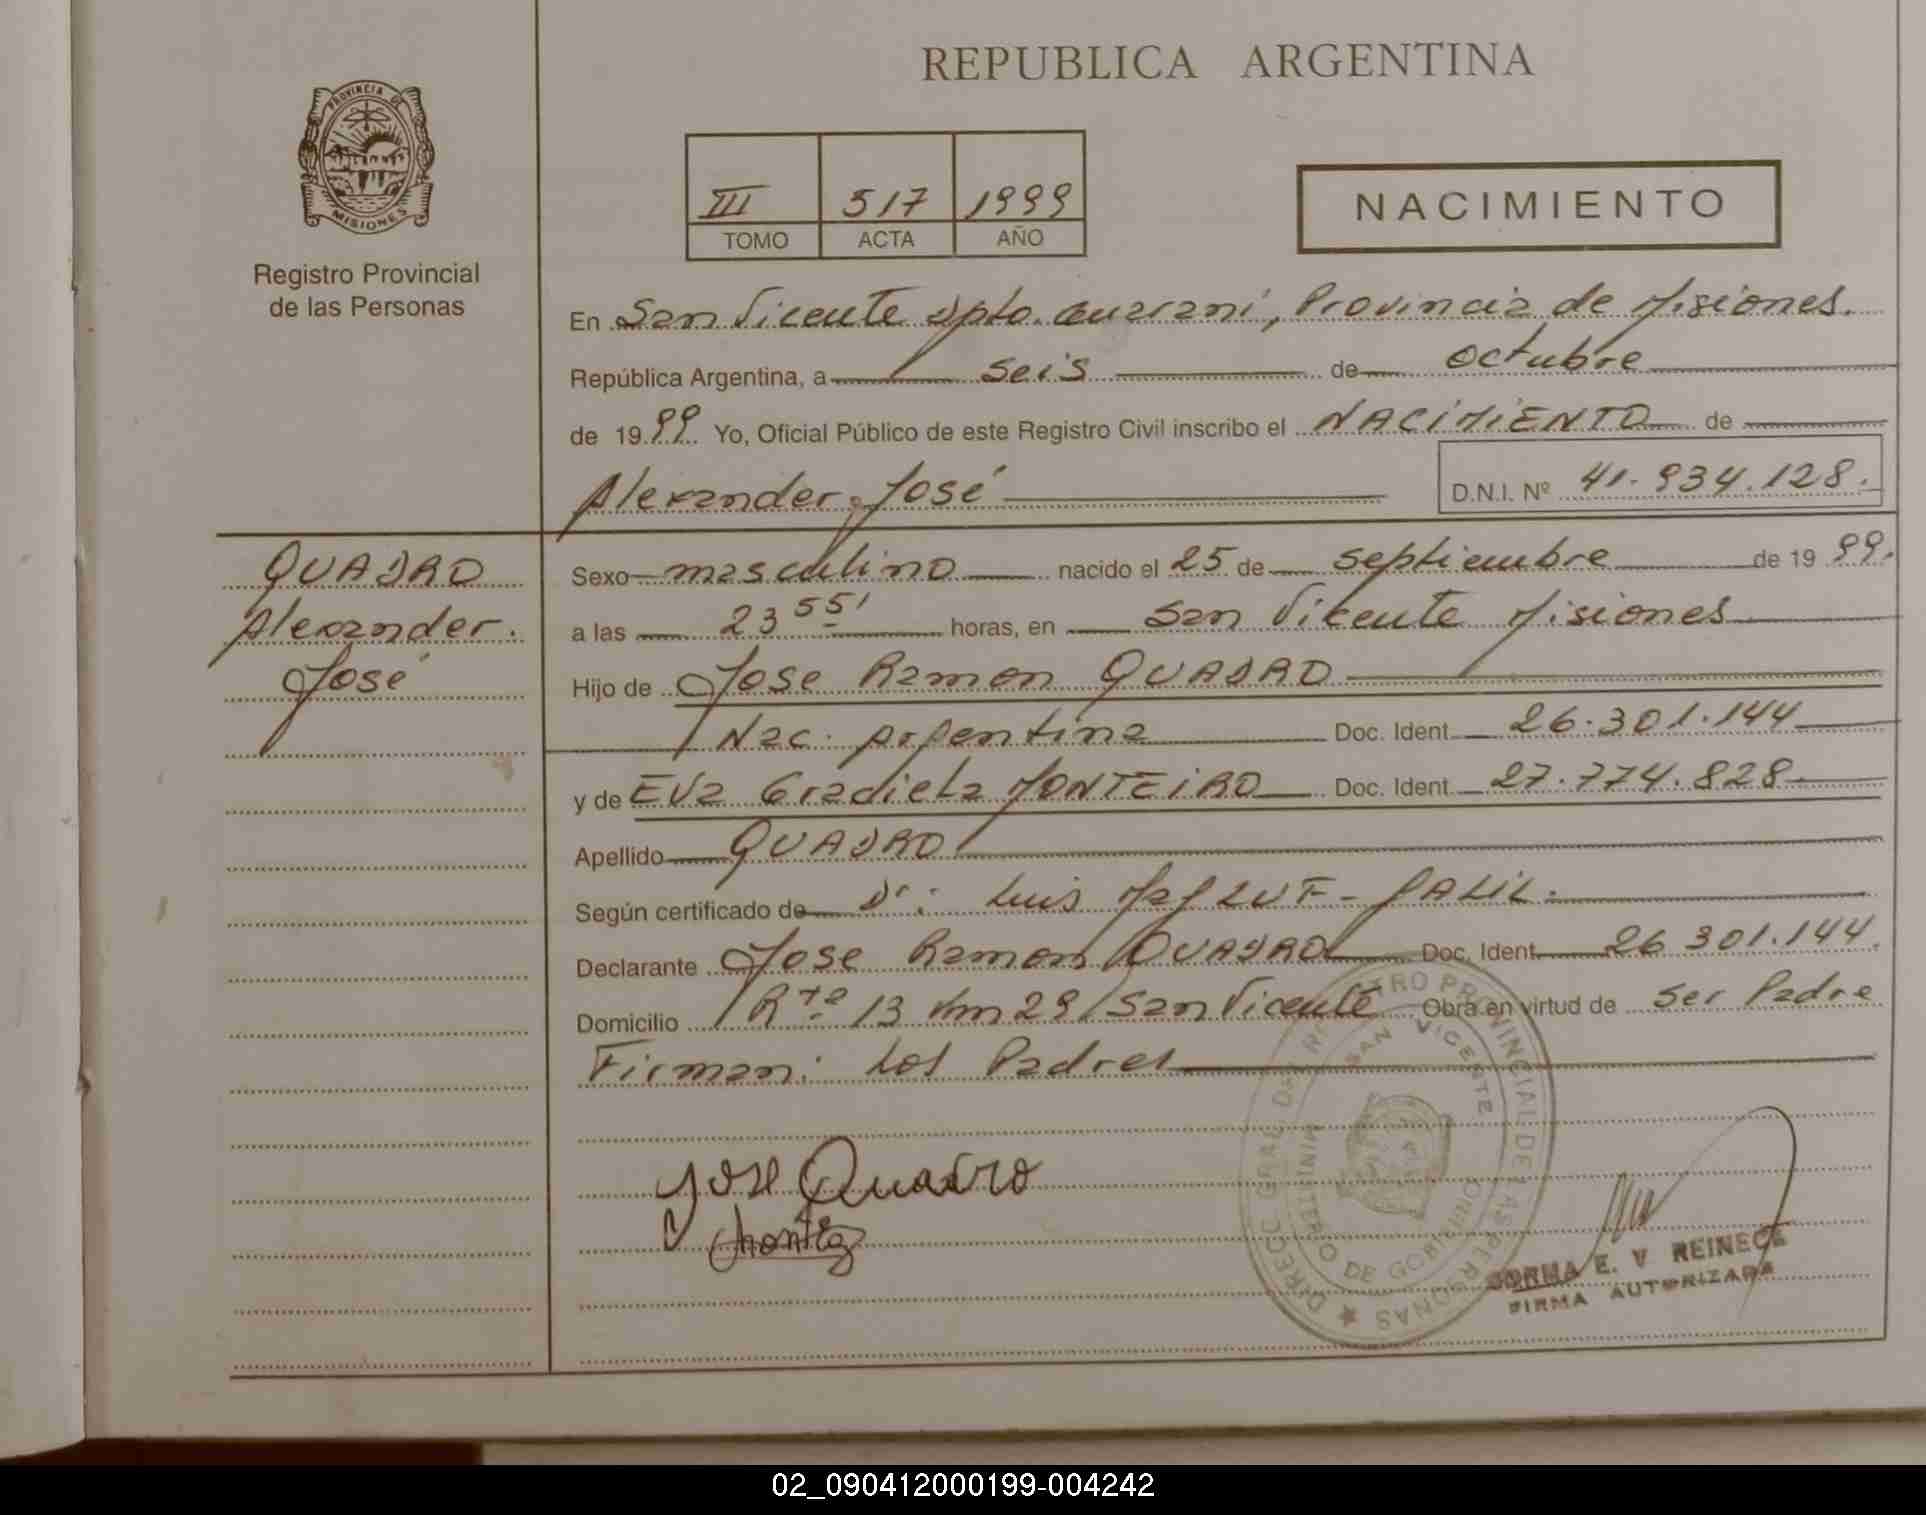 REPUBLICA ARGENTINA
PROVINCIA DE
MISIONES
Registro Provincial
de las Personas
III 517 1999
TOMO ACTA AÑO
NACIMIENTO
En San Vicente Dpto. Guaraní, Provincia de Misiones.
República Argentina, a seis de octubre
de 1999 Yo, Oficial Público de este Registro Civil inscribo el NACIMIENTO de
Alexander José
D.N.I. Nº 41.934.128.
QUADRO
Alexander.
José
Sexo masculino nacido el 25 de septiembre de 1999.
a las 23 55' horas, en San Vicente Misiones
Hijo de Jose Ramon QUADRO
Nac. Argentina Doc. Ident. 26.301.144
y de Eva Graciela MONTEIRO Doc. Ident. 27.774.828
Apellido QUADRO
Según certificado de Dr: Luis
Declarante Jose Ramon QUADRO Doc. Ident. 26 301.144.
Domicilio Rta 13 Km 29/San Vicente Obra en virtud de ser Padre
Firman: Los Padres
Jose Quadro
DIRECC. GRAL. DEL REGISTRO PROVINCIAL DE LAS PERSONAS
SAN VICENTE
MINISTERIO DE GOBIERNO
E. V REINECE
FIRMA AUTORIZADA
02_090412000199-004242